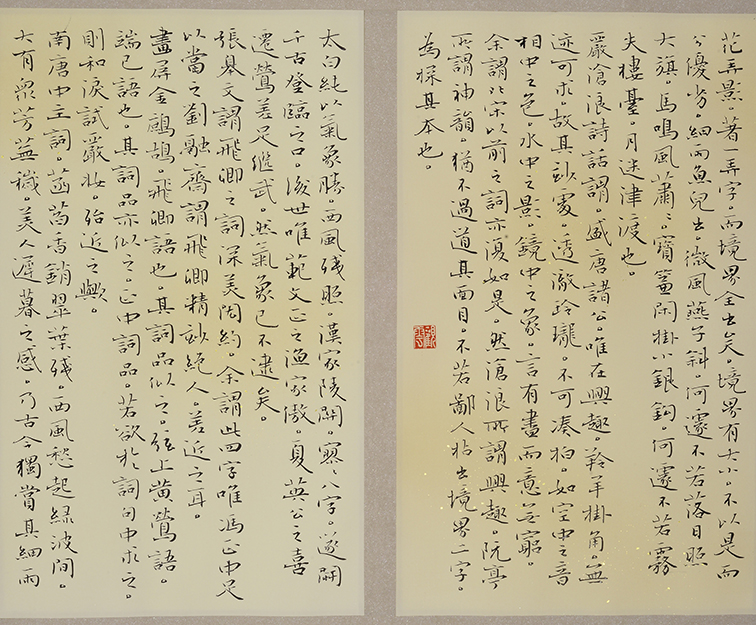 花弄影。著一弄字。而境界全出矣。境界有大小。不以是而
分優劣。細雨魚兒出。微風燕子斜。何遽不若落日照
大旗。馬鳴風蕭〻。寶簾閑掛小銀鉤。何遽不若霧
失樓臺。月迷津渡也。
嚴滄浪詩話謂。盛唐諸公。唯在興趣。羚羊掛角。無
迹可求。故其妙處。透澈玲瓏。不可湊拍。如空中之音
相中之色。水中之影。鏡中之象。言有盡而意无窮。
余謂北宋以前之詞亦復如是。然滄浪所謂興趣。阮亭
所謂神韻。猶不過道其面目。不若鄙人拈出境界二字。
為探其本也。
太白純以氣象勝。西風殘照。漢家陵闕。寥〻八字。遂關
千古登臨之口。後世唯範文正之漁家傲。夏英公之喜
遷鶯差足繼武。然氣象已不逮矣。
張皋文謂飛卿之詞深美閎約。余謂此四字唯馮正中足
以當之劉融齋謂飛卿精妙絕人。差近之耳。
畫屏金鷓鴣。飛卿語也。其詞品似之。弦上黃鶯語。
端己語也。其詞品亦似之。正中詞品。若欲於詞句中求之。
則和淚試嚴妝。殆近之歟。
南唐中主詞。菡萏香銷翠葉殘。西風愁起綠波間。
大有眾芳蕪穢。美人遲暮之感。乃古今獨賞其細雨